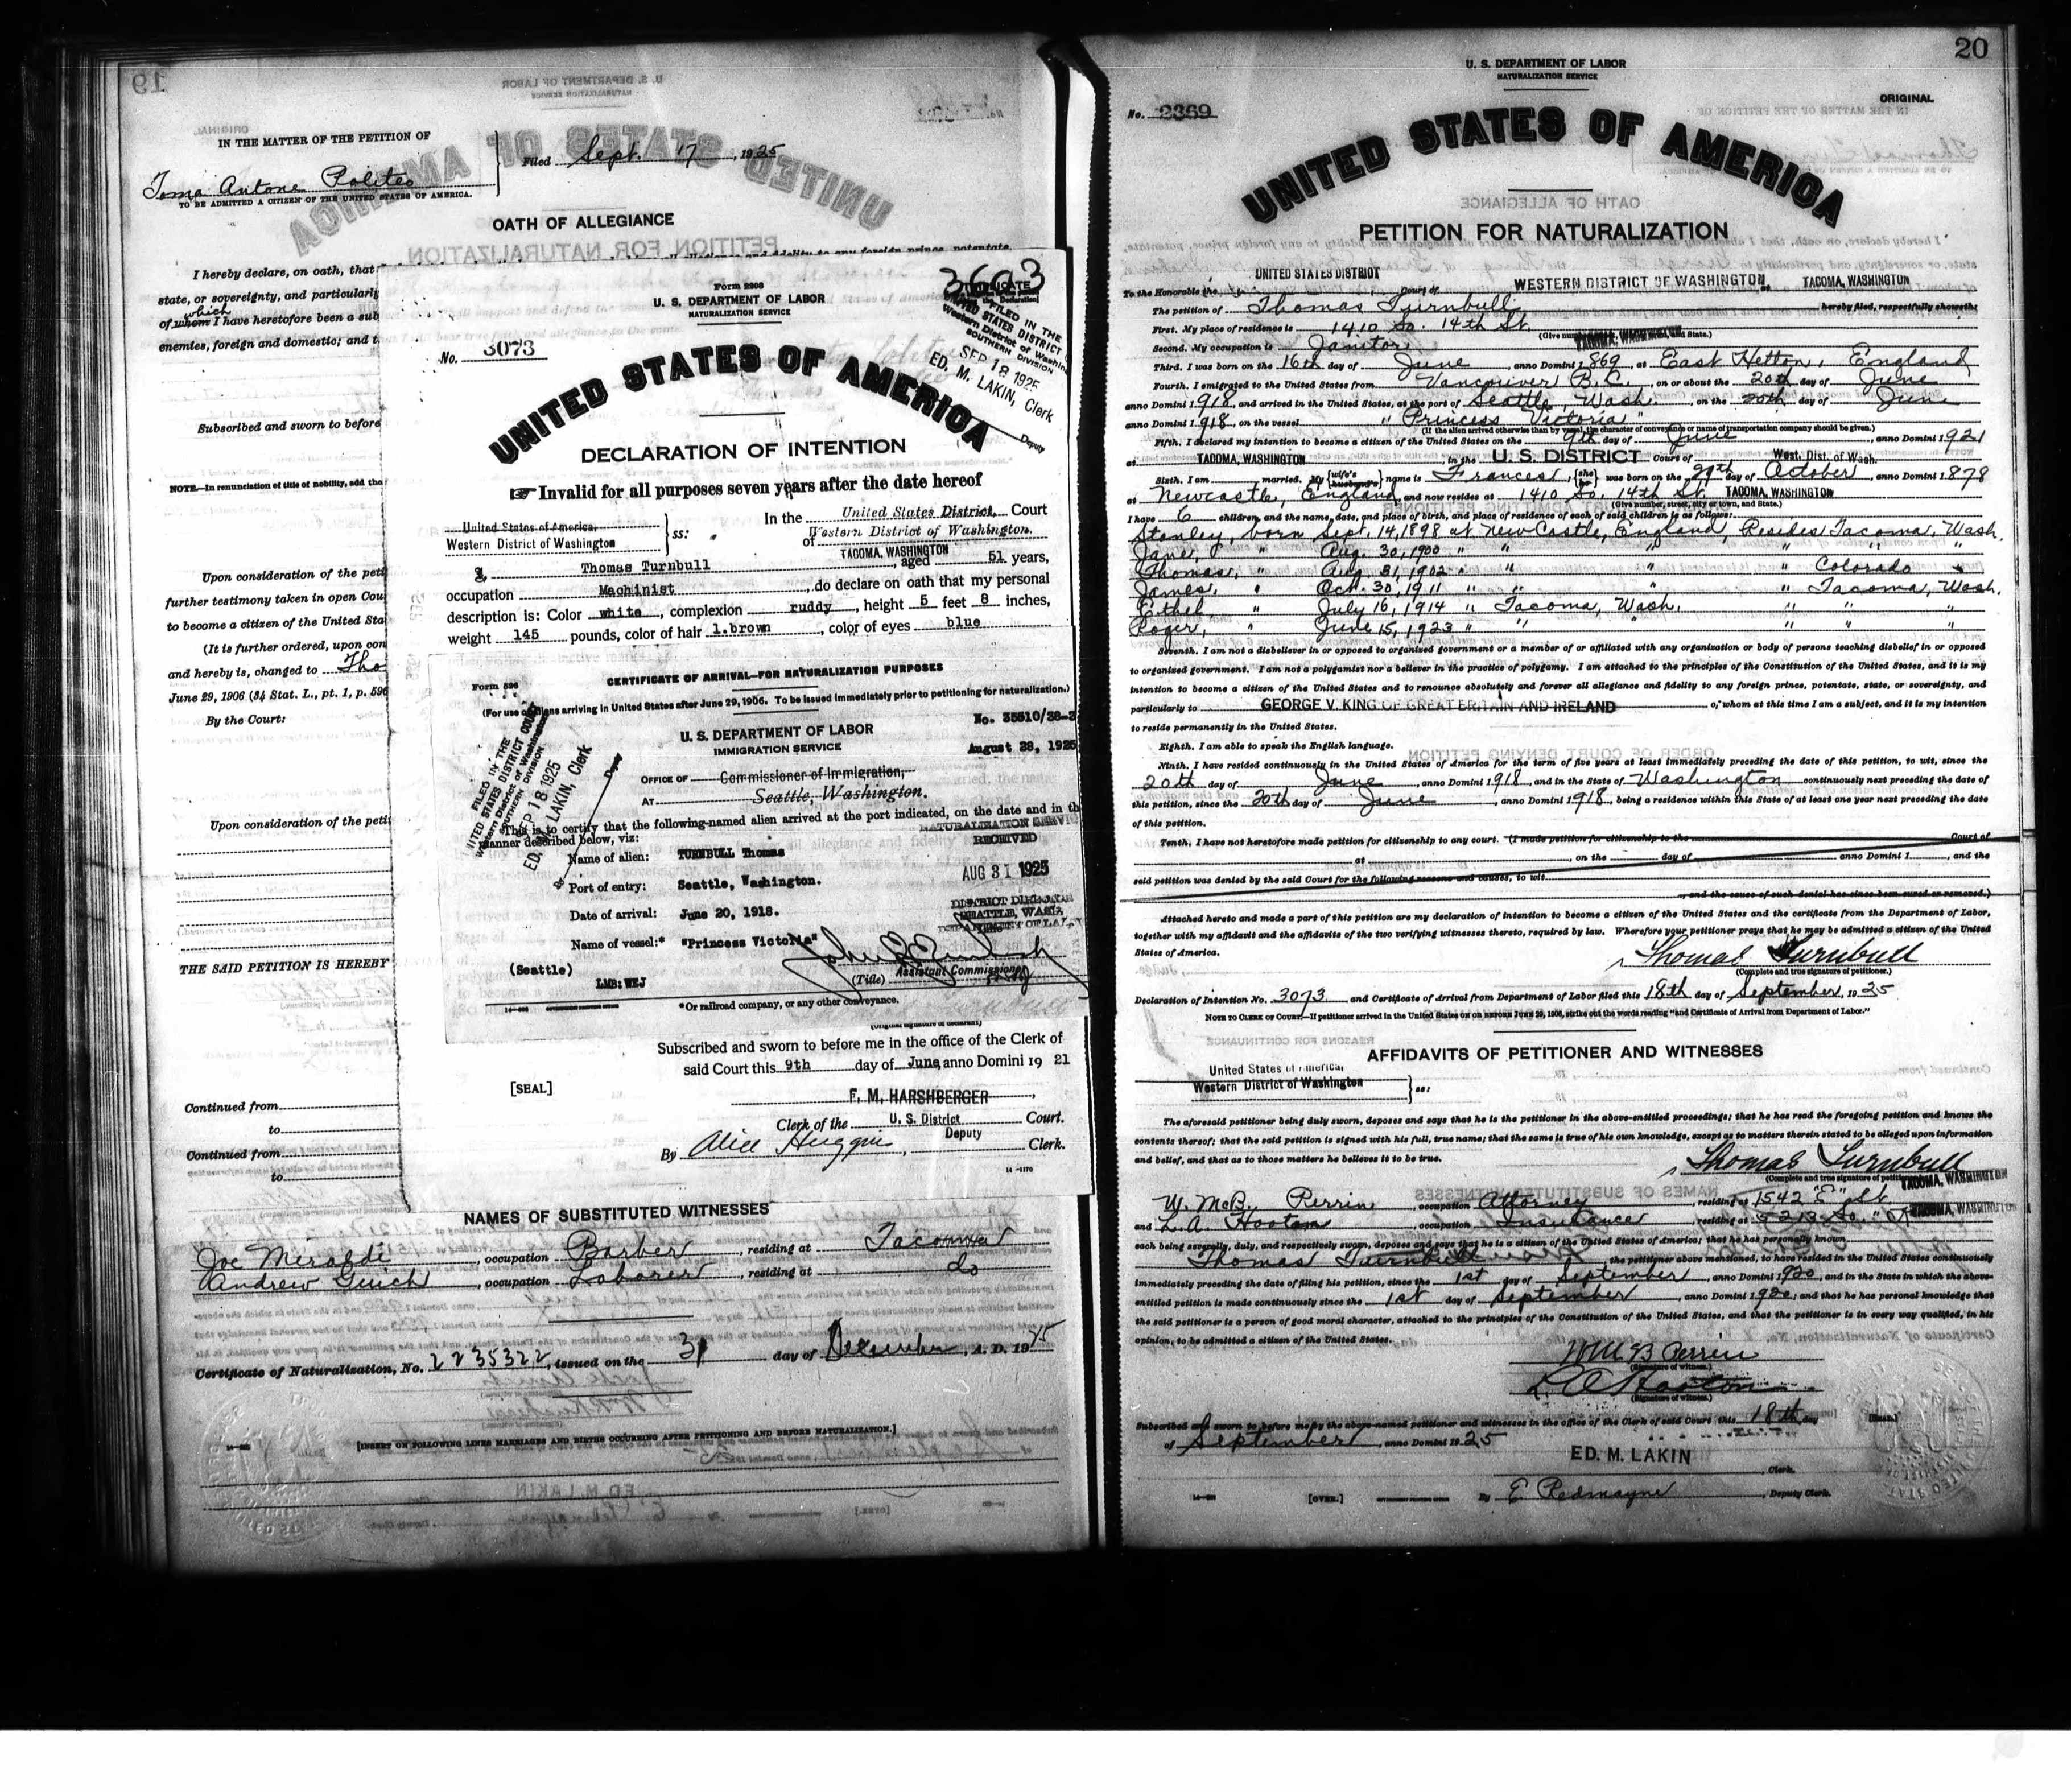 19
IN THE MATTER OF THE PETITION OF
Toma Antone Politeo
TO BE ADMITTED A CITIZEN OF THE UNITED STATES OF AMERICA.
Filed Sept. 17, 1925
OATH OF ALLEGIANCE
I hereby declare, on oath, that
state, or sovereignty, and particularly
which
of whom I have heretofore been a sub
enemies, foreign and domestic; and t
Subscribed and sworn to before
NOTE.—In renunciation of title of nobility, add the
Upon consideration of the peti
further testimony taken in open Cou
to become a citizen of the United Sta
(It is further ordered, upon con
and hereby is, changed to Tho
June 29, 1906 (34 Stat. L., pt. 1, p. 596
By the Court:
Upon consideration of the peti
THE SAID PETITION IS HEREBY
Continued from
to
Continued from
to
3603
Form 2203
U. S. DEPARTMENT OF LABOR
NATURALIZATION SERVICE
FILED IN THE
UNITED STATES DISTRICT
Western District of Washin
SOUTHERN DIVISION
SEP 18 1925
ED. M. LAKIN, Clerk
Deputy
No. 3073
UNITED STATES OF AMERICA
DECLARATION OF INTENTION
☞ Invalid for all purposes seven years after the date hereof
United States of America,
Western District of Washington
ss:
In the United States District, Court
of Western District of Washington.
TACOMA, WASHINGTON
I, Thomas Turnbull, aged 51 years,
occupation Machinist, do declare on oath that my personal
description is: Color white, complexion ruddy, height 5 feet 8 inches,
weight 145 pounds, color of hair l.brown, color of eyes blue
Form 526
CERTIFICATE OF ARRIVAL—FOR NATURALIZATION PURPOSES
(For use of aliens arriving in United States after June 29, 1906. To be issued immediately prior to petitioning for naturalization.)
No. 35510/38-3
U. S. DEPARTMENT OF LABOR
IMMIGRATION SERVICE
August 28, 1925
OFFICE OF Commissioner of Immigration,
AT Seattle, Washington.
FILED IN THE
UNITED STATES DISTRICT COURT
Western District of Washington
SOUTHERN DIVISION
SEP 18 1925
ED. M. LAKIN, Clerk
Deputy
This is to certify that the following-named alien arrived at the port indicated, on the date and in th
manner described below, viz:
NATURALIZATION SERVI
RECEIVED
AUG 31 1925
DISTRICT DIRECTOR
SEATTLE, WASH.
DEPARTMENT OF LA
Name of alien: TURNBULL Thomas
Port of entry: Seattle, Washington.
Date of arrival: June 20, 1918.
Name of vessel:* "Princess Victoria"
(Seattle)
LMB:WEJ
(Title) Assistant Commissioner
*Or railroad company, or any other conveyance.
(Original signature of declarant)
Subscribed and sworn to before me in the office of the Clerk of
said Court this 9th day of June, anno Domini 19 21
[SEAL]
F. M. HARSHBERGER,
Clerk of the U. S. District Court.
Deputy
By Alice Huggins, Clerk.
14—1176
NAMES OF SUBSTITUTED WITNESSES
Joe Miraldi, occupation Barber, residing at Tacoma
Andrew Guich, occupation Laborer, residing at do
Certificate of Naturalization, No. 2235322, issued on the 31 day of December, A. D. 1925
[INSERT ON FOLLOWING LINES MARRIAGES AND BIRTHS OCCURRING AFTER PETITIONING AND BEFORE NATURALIZATION.]
20
U. S. DEPARTMENT OF LABOR
NATURALIZATION SERVICE
No. 2369
ORIGINAL
UNITED STATES OF AMERICA
PETITION FOR NATURALIZATION
To the Honorable the UNITED STATES DISTRICT Court of WESTERN DISTRICT OF WASHINGTON, TACOMA, WASHINGTON
The petition of Thomas Turnbull hereby filed, respectfully showeth:
First. My place of residence is 1410 So. 14th St. TACOMA, WASHINGTON
Second. My occupation is Janitor
Third. I was born on the 16th day of June, anno Domini 1869, at East Hetton, England
Fourth. I emigrated to the United States from Vancouver B.C., on or about the 20th day of June
anno Domini 1918, and arrived in the United States, at the port of Seattle, Wash., on the 20th day of June
anno Domini 1918, on the vessel "Princess Victoria"
(If the alien arrived otherwise than by vessel, the character of conveyance or name of transportation company should be given.)
Fifth. I declared my intention to become a citizen of the United States on the 9th day of June, anno Domini 1921
at TACOMA, WASHINGTON in the U. S. DISTRICT Court of West. Dist. of Wash.
Sixth. I am married. My wife's name is Frances; she was born on the 29th day of October, anno Domini 1878
at Newcastle, England, and now resides at 1410 So. 14th St. TACOMA, WASHINGTON
(Give number, street, city or town, and State.)
I have 6 children, and the name, date, and place of birth, and place of residence of each of said children is as follows:
Stanley, born Sept. 14, 1898 at New Castle, England, Resides Tacoma, Wash.
Jane, " Aug. 30, 1900 " " " " " "
Thomas, " Aug. 31, 1902 " " " " Colorado
James, " Oct. 30, 1911 " " " " Tacoma, Wash.
Ethel " July 16, 1914 " Tacoma, Wash. " " "
Roger, " June 15, 1923 " " " " " "
Seventh. I am not a disbeliever in or opposed to organized government or a member of or affiliated with any organization or body of persons teaching disbelief in or opposed
to organized government. I am not a polygamist nor a believer in the practice of polygamy. I am attached to the principles of the Constitution of the United States, and it is my
intention to become a citizen of the United States and to renounce absolutely and forever all allegiance and fidelity to any foreign prince, potentate, state, or sovereignty, and
particularly to GEORGE V. KING OF GREAT BRITAIN AND IRELAND of whom at this time I am a subject, and it is my intention
to reside permanently in the United States.
Eighth. I am able to speak the English language.
Ninth. I have resided continuously in the United States of America for the term of five years at least immediately preceding the date of this petition, to wit, since the
20th day of June, anno Domini 1918, and in the State of Washington continuously next preceding the date of
this petition, since the 20th day of June, anno Domini 1918, being a residence within this State of at least one year next preceding the date
of this petition.
Tenth. I have not heretofore made petition for citizenship to any court. (I made petition for citizenship to the Court of
at, on the day of anno Domini 1, and the
said petition was denied by the said Court for the following reasons and causes, to wit
and the cause of such denial has since been cured or removed.)
Attached hereto and made a part of this petition are my declaration of intention to become a citizen of the United States and the certificate from the Department of Labor,
together with my affidavit and the affidavits of the two verifying witnesses thereto, required by law. Wherefore your petitioner prays that he may be admitted a citizen of the United
States of America.
Thomas Turnbull
(Complete and true signature of petitioner.)
Declaration of Intention No. 3073 and Certificate of Arrival from Department of Labor filed this 18th day of September, 1925
NOTE TO CLERK OF COURT.—If petitioner arrived in the United States on or before June 29, 1906, strike out the words reading "and Certificate of Arrival from Department of Labor."
AFFIDAVITS OF PETITIONER AND WITNESSES
United States of America,
Western District of Washington
ss:
The aforesaid petitioner being duly sworn, deposes and says that he is the petitioner in the above-entitled proceedings; that he has read the foregoing petition and knows the
contents thereof; that the said petition is signed with his full, true name; that the same is true of his own knowledge, except as to matters therein stated to be alleged upon information
and belief, and that as to those matters he believes it to be true.
Thomas Turnbull
(Complete and true signature of petitioner.)
TACOMA, WASHINGTON
W. McB. Perrin, occupation Attorney, residing at 1542 "E" St.
and L. A. Hooton, occupation Insurance, residing at 5213 So. TACOMA, WASHINGTON
each being severally, duly, and respectively sworn, deposes and says that he is a citizen of the United States of America; that he has personally known
Thomas Turnbull the petitioner above mentioned, to have resided in the United States continuously
immediately preceding the date of filing his petition, since the 1st day of September, anno Domini 1920, and in the State in which the above-
entitled petition is made continuously since the 1st day of September, anno Domini 1920; and that he has personal knowledge that
the said petitioner is a person of good moral character, attached to the principles of the Constitution of the United States, and that the petitioner is in every way qualified, in his
opinion, to be admitted a citizen of the United States.
W McB Perrin
(Signature of witness.)
L. A. Hooton
(Signature of witness.)
Subscribed and sworn to before me by the above-named petitioner and witnesses in the office of the Clerk of said Court this 18th day
of September, anno Domini 1925
[SEAL.]
ED. M. LAKIN
Clerk.
[OVER.]
By E Redmayne, Deputy Clerk.